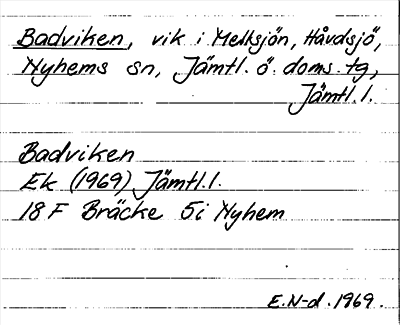 Badviken, vik i Mellsjön, Håvdsjö,
Nyhems sn, Jämtl. ö. doms. tg,
Jämtl. l.
Badviken
Ek (1969) Jämtl. l.
18 F Bräcke 5i Nyhem
E.N-d. 1969.